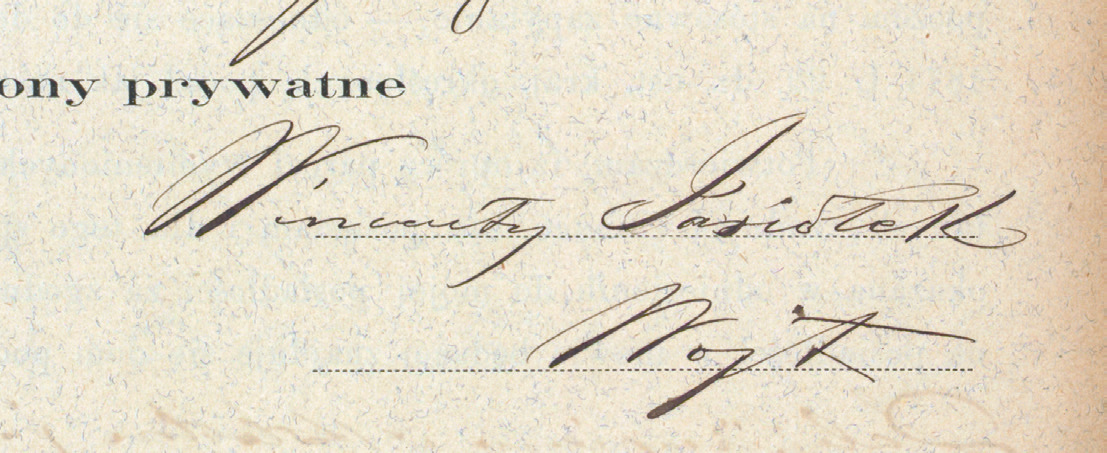 ony prywatne
Wincenty Jasiółek
Wojt